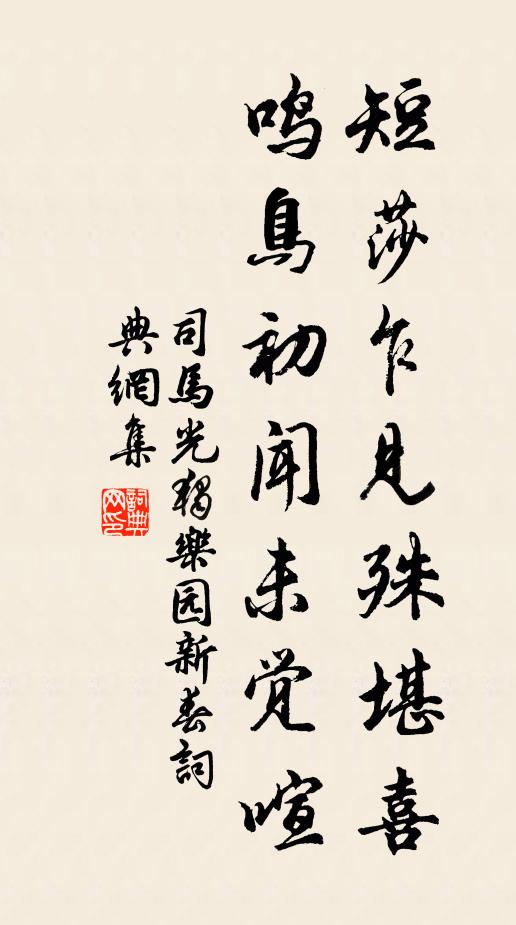 短莎乍見殊堪喜
鳴鳥初闻未觉喧
司馬光獨樂园新春詞
典網集
詞典网印